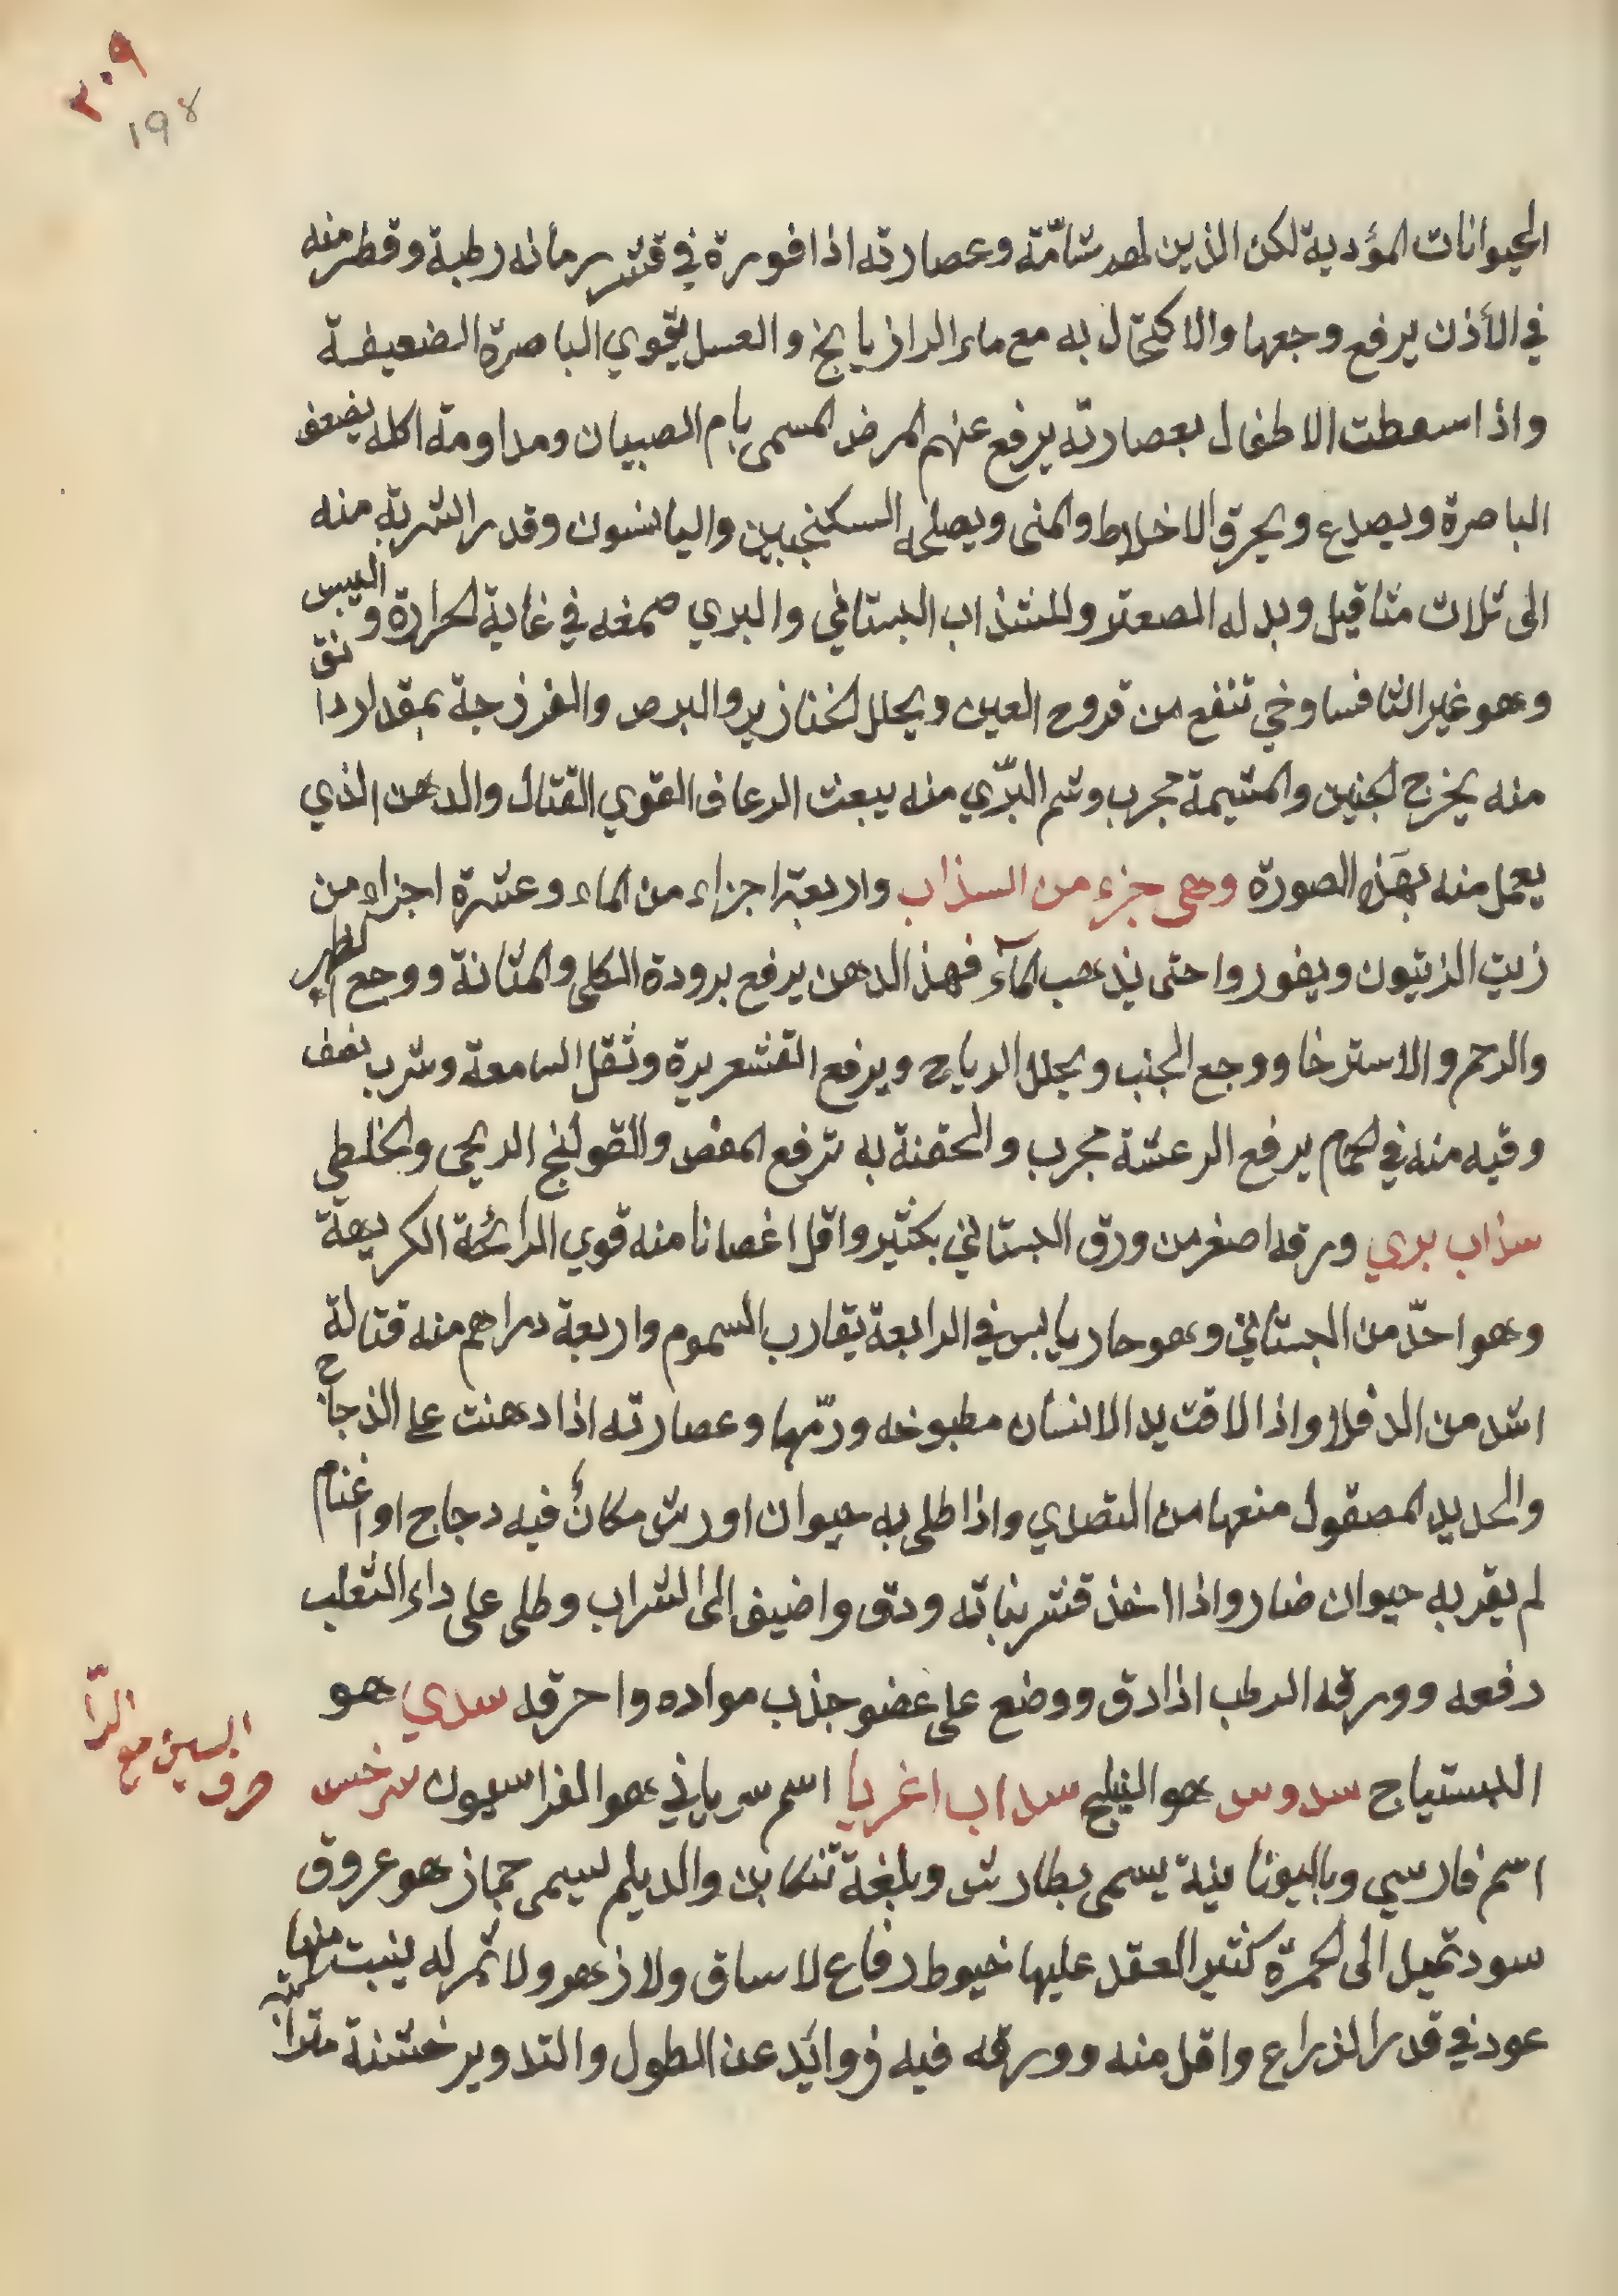 ٣٠٩
١٩٨
الحيوانات المؤدية لكن الذين لهم شامّة وعصارته اذا فورة في قشر رمانه رطبة وقطر منه
في الأذن يرفع وجعها والاكتحال به مع ماء الرازيانج والعسل يقوي الباصرة الضعيفة
واذا سعطت الاطفال بعصارته يرفع عنهم المرض المسمى بام الصبيان ومداومة اكله يضعف
الباصرة ويصدع ويحرق الاخلاط والمنى ويصلحه السكنجبين واليانسون وقدر الشربة منه
الى ثلاث مثاقيل وبدله الصعتر وللسذاب البستاني والبري صمغه في غاية الحرارة واليبس
وهو غير الثافسيا وخي تنفع من قروح العين ويحلل الخنازير والبرص والفرزجة بمقدار دانق
منه يخرج الجنين والمشيمة مجرب وشم البرّي منه يبعث الرعاف القوي القتال والدهن الذي
يعمل منه بهذه الصورة وهي جزء من السذاب واربعة اجزاء من الماء وعشرة اجزاء من
زيت الزيتون ويفوروا حتى يذهب المآء فهذا الدهن يرفع برودة الكلى والمثانة ووجع الظهر
والرحم والاسترخا ووجع الجنب ويحلل الرياح ويرفع القشعريرة وثقل السامعة وشرب نصف
وقيه منه في الحمام يرفع الرعشة مجرب والحقنة به ترفع المغص والقولنج الريحي والخلطي
سذاب بري ورقه اصغر من ورق البستاني بكثير واقل اغصانا منه قوي الرائحة الكريهة
وهو احدّ من البستاني وهو حار يابس في الرابعة يقارب السموم واربعة دراهم منه قتالة
اشد من الدفلا واذا لاقت يد الانسان مطبوخه ورّمها وعصارته اذا دهنت على الزجاج
والحديد المصقول منعها من التصدي واذا طلي به حيوان او رش مكانٌ فيه دجاج او اغنام
لم يقربه حيوان ضار واذا اخذ قشر نباته ودق واضيف الى الشراب وطلي على داء الثعلب
دفعه وورقه الرطب اذا دق ووضع على عضو جذب مواده واحرقه سدي هو
البستياج سدوس هو النيلج سداب اغريا اسم سرياني هو الفراسيون سرخس
حرف السين مع الرّا
اسم فارسي وباليونانية يسمى بطارش وبلغة تنكابن والديلم يسمى جماز هو عروق
سود تميل الى الحمرة كثير العقد عليها خيوط رفاع لا ساق ولا زهر ولا ثمر له ينبت منها
عود في قدر الذراع واقل منه وورقه فيه زوائد عن الطول والتدوير خشنة